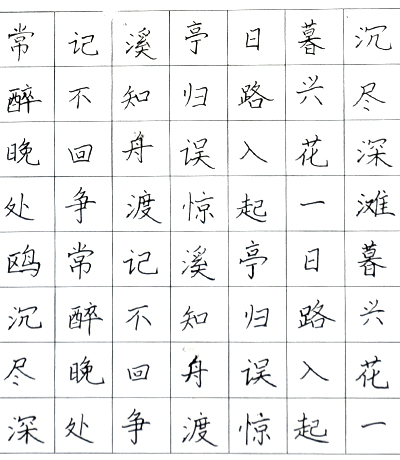 常记溪亭日暮沉
醉不知归路兴尽
晚回舟误入花深
处争渡惊起一滩
鸥常记溪亭日暮
沉醉不知归路兴
尽晚回舟误入花
深处争渡惊起一